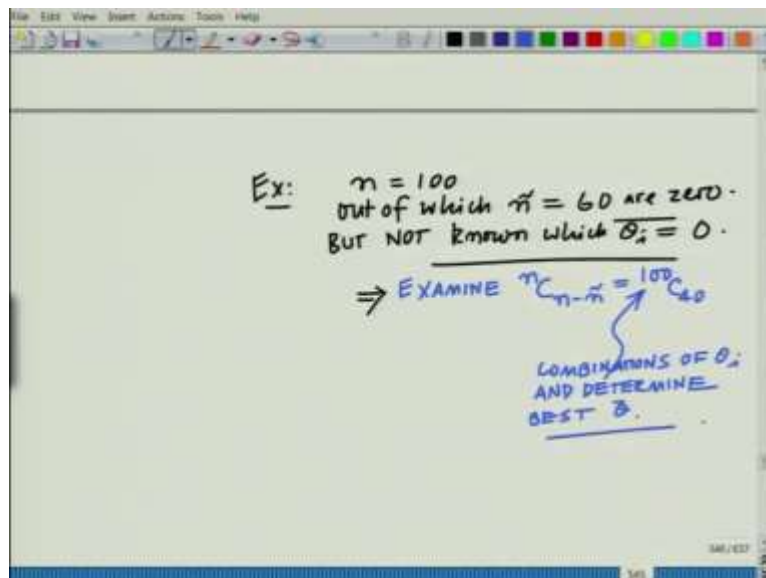 File Edit View Insert Actions Tools Help
Ex: n = 100
out of which ñ = 60 are zero.
BUT NOT known which θ̄ᵢ = 0.
⇒ EXAMINE ⁿCₙ₋ñ = ¹⁰⁰C₄₀
COMBINATIONS OF θᵢ
AND DETERMINE
BEST θ̄.
545